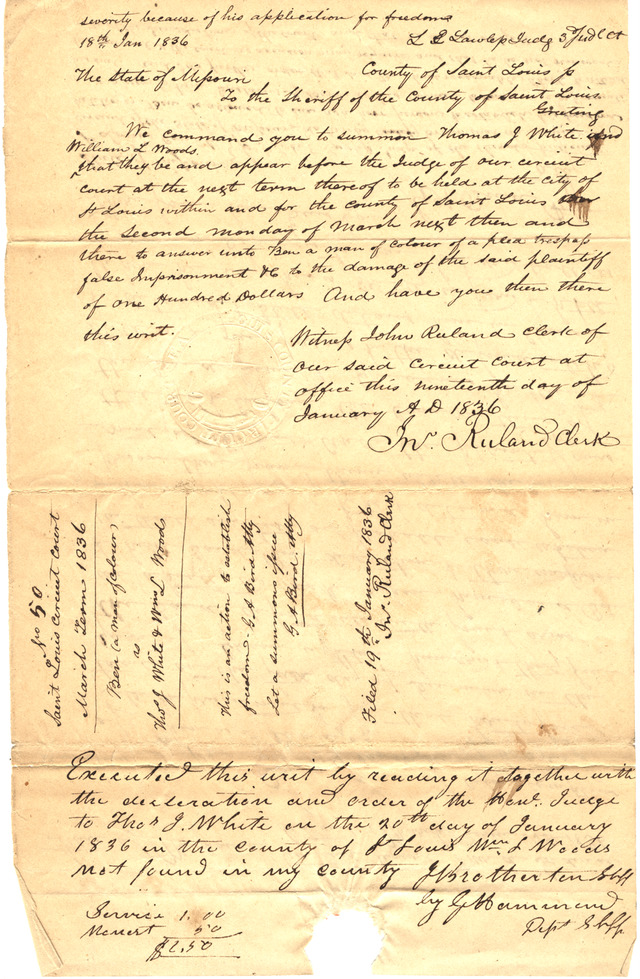 severity because of his application for freedom
18th Jan 1836
L E Lawless Judge 3 Judl Ct
The State of Missouri
County of Saint Louis ss
To the Sheriff of the County of Saint Louis
Greeting
We command you to summon Thomas J White and
William L Woods
that they be and appear before the Judge of our circuit
court at the next term thereof to be held at the city of
St Louis within and for the county of Saint Louis on
the second monday of March next then and
there to answer unto Ben a man of colour of a plea trespass
false Imprisonment &c to the damage of the said plaintiff
of one Hundred Dollars And have you then there
this writ.
Witness John Ruland Clerk of
our said circuit court at
office this nineteenth day of
January A D 1836
Jno. Ruland Clerk
No 50
Saint Louis Circuit Court
March Term 1836
Ben (a man of colour)
vs
Thos J White & Wm L Wood
This is an action to establish
freedom - G A Bird Atty
Let a summons issue
G A Bird Atty
Filed 19th January 1836
Jno. Ruland Clerk
Executed this writ by reading it together with
the declaration and order of the Honl. Judge
to Thos J. White on the 20th day of January
1836 in the county of St Louis Wm L Woods
not found in my county J Brotherton Shff
by G Hammond
Dept Shff
Service 1.00
50
$1.50